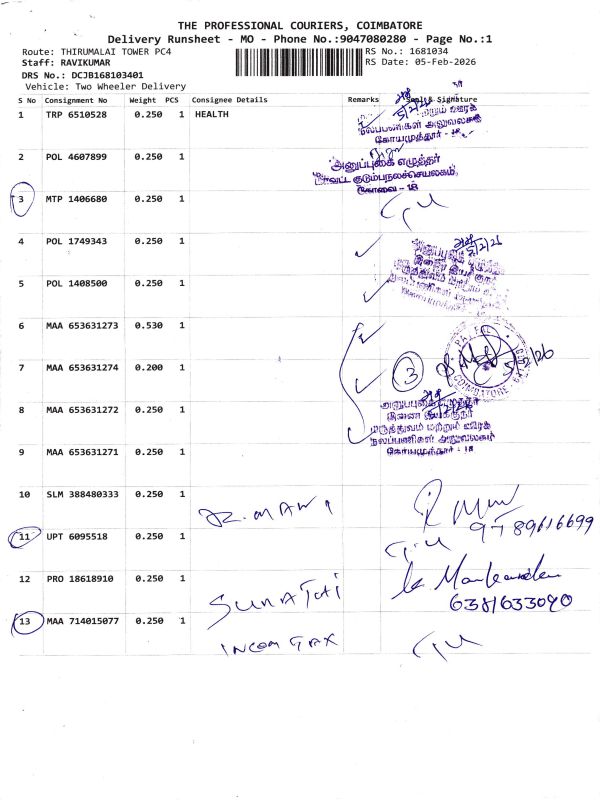 THE PROFESSIONAL COURIERS, COIMBATORE
Delivery Runsheet - MO - Phone No.:9047080280 - Page No.:1
Route: THIRUMALAI TOWER PC4
RS No.: 1681034
Staff: RAVIKUMAR
RS Date: 05-Feb-2026
DRS No.: DCJB168103401
Vehicle: Two Wheeler Delivery
S No Consignment No Weight PCS Consignee Details Remarks Signature
1 TRP 6510528 0.250 1 HEALTH
5/2/26
நலப்பணிகள் அலுவலகம்
கோயமுத்தூர் - 18
2 POL 4607899 0.250 1
அனுப்புகை எழுத்தர்
குடும்பநலச்செயலகம்,
கோவை - 18
3 MTP 1406680 0.250 1
4 POL 1749343 0.250 1
5/2/26
5 POL 1408500 0.250 1
6 MAA 653631273 0.530 1
COIMBATORE
3
5/2/26
7 MAA 653631274 0.200 1
8 MAA 653631272 0.250 1
அனுப்புகை எழுத்தர்
இணை இயக்குநர்
மருத்துவம் மற்றும் ஊரக
நலப்பணிகள் அலுவலகம்
கோயமுத்தூர் - 18
9 MAA 653631271 0.250 1
10 SLM 388480333 0.250 1
9789616699
11 UPT 6095518 0.250 1
12 PRO 18618910 0.250 1
6381633090
13 MAA 714015077 0.250 1
INCOM TAX